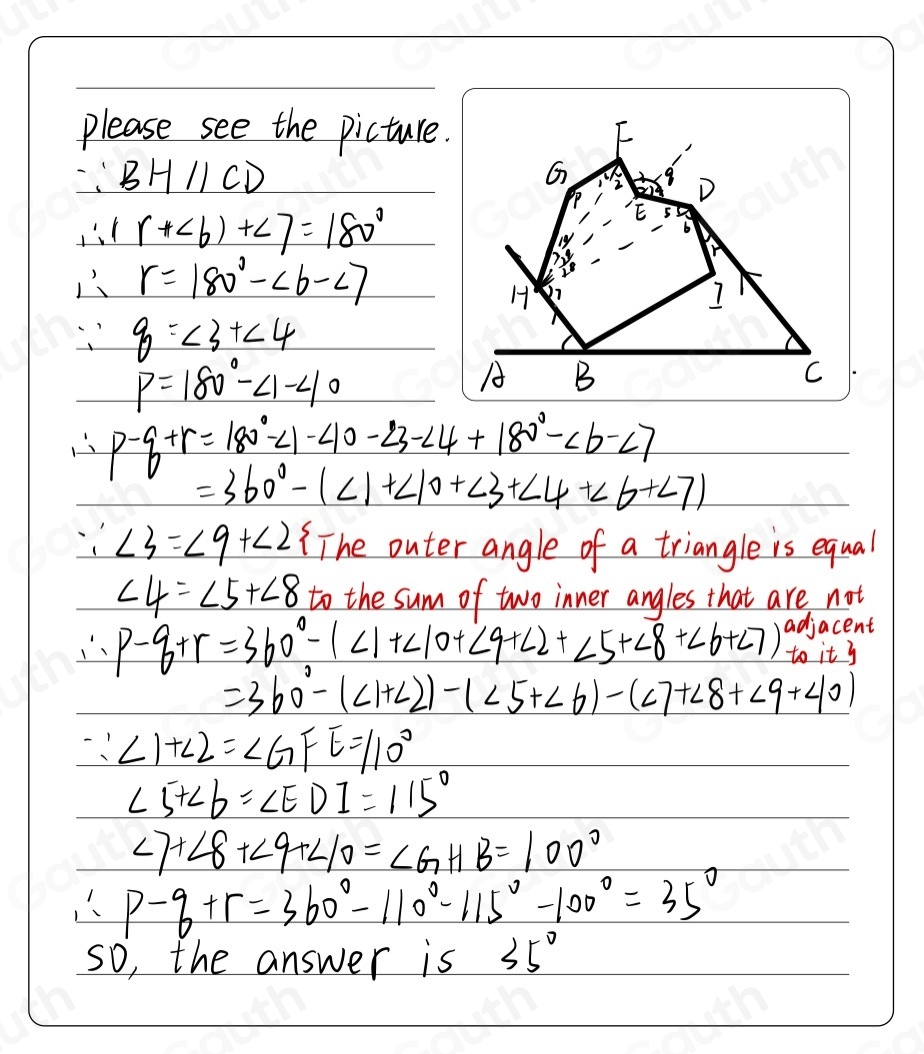 please see the picture.
∵ BH // CD
∴ (r+∠6)+∠7=180°
∴ r=180°-∠6-∠7
∵ q=∠3+∠4
p=180°-∠1-∠10
∴ p-q+r=180°-∠1-∠10-∠3-∠4+180°-∠6-∠7
=360°-(∠1+∠10+∠3+∠4+∠6+∠7)
∵ ∠3=∠9+∠2 {The outer angle of a triangle is equal
∠4=∠5+∠8 to the sum of two inner angles that are not
adjacent
∴ p-q+r=360°-(∠1+∠10+∠9+∠2+∠5+∠8+∠6+∠7) to it}
=360°-(∠1+∠2)-(∠5+∠6)-(∠7+∠8+∠9+∠10)
∵ ∠1+∠2=∠GFE=110°
∠5+∠6=∠EDI=115°
∠7+∠8+∠9+∠10=∠GHB=100°
∴ p-q+r=360°-110°-115°-100°=35°
SO, the answer is 35°
F
G
1 2 3 4 q
P
E 5 D
6
r
10
9
8
H 7
I
A B C
Gauth